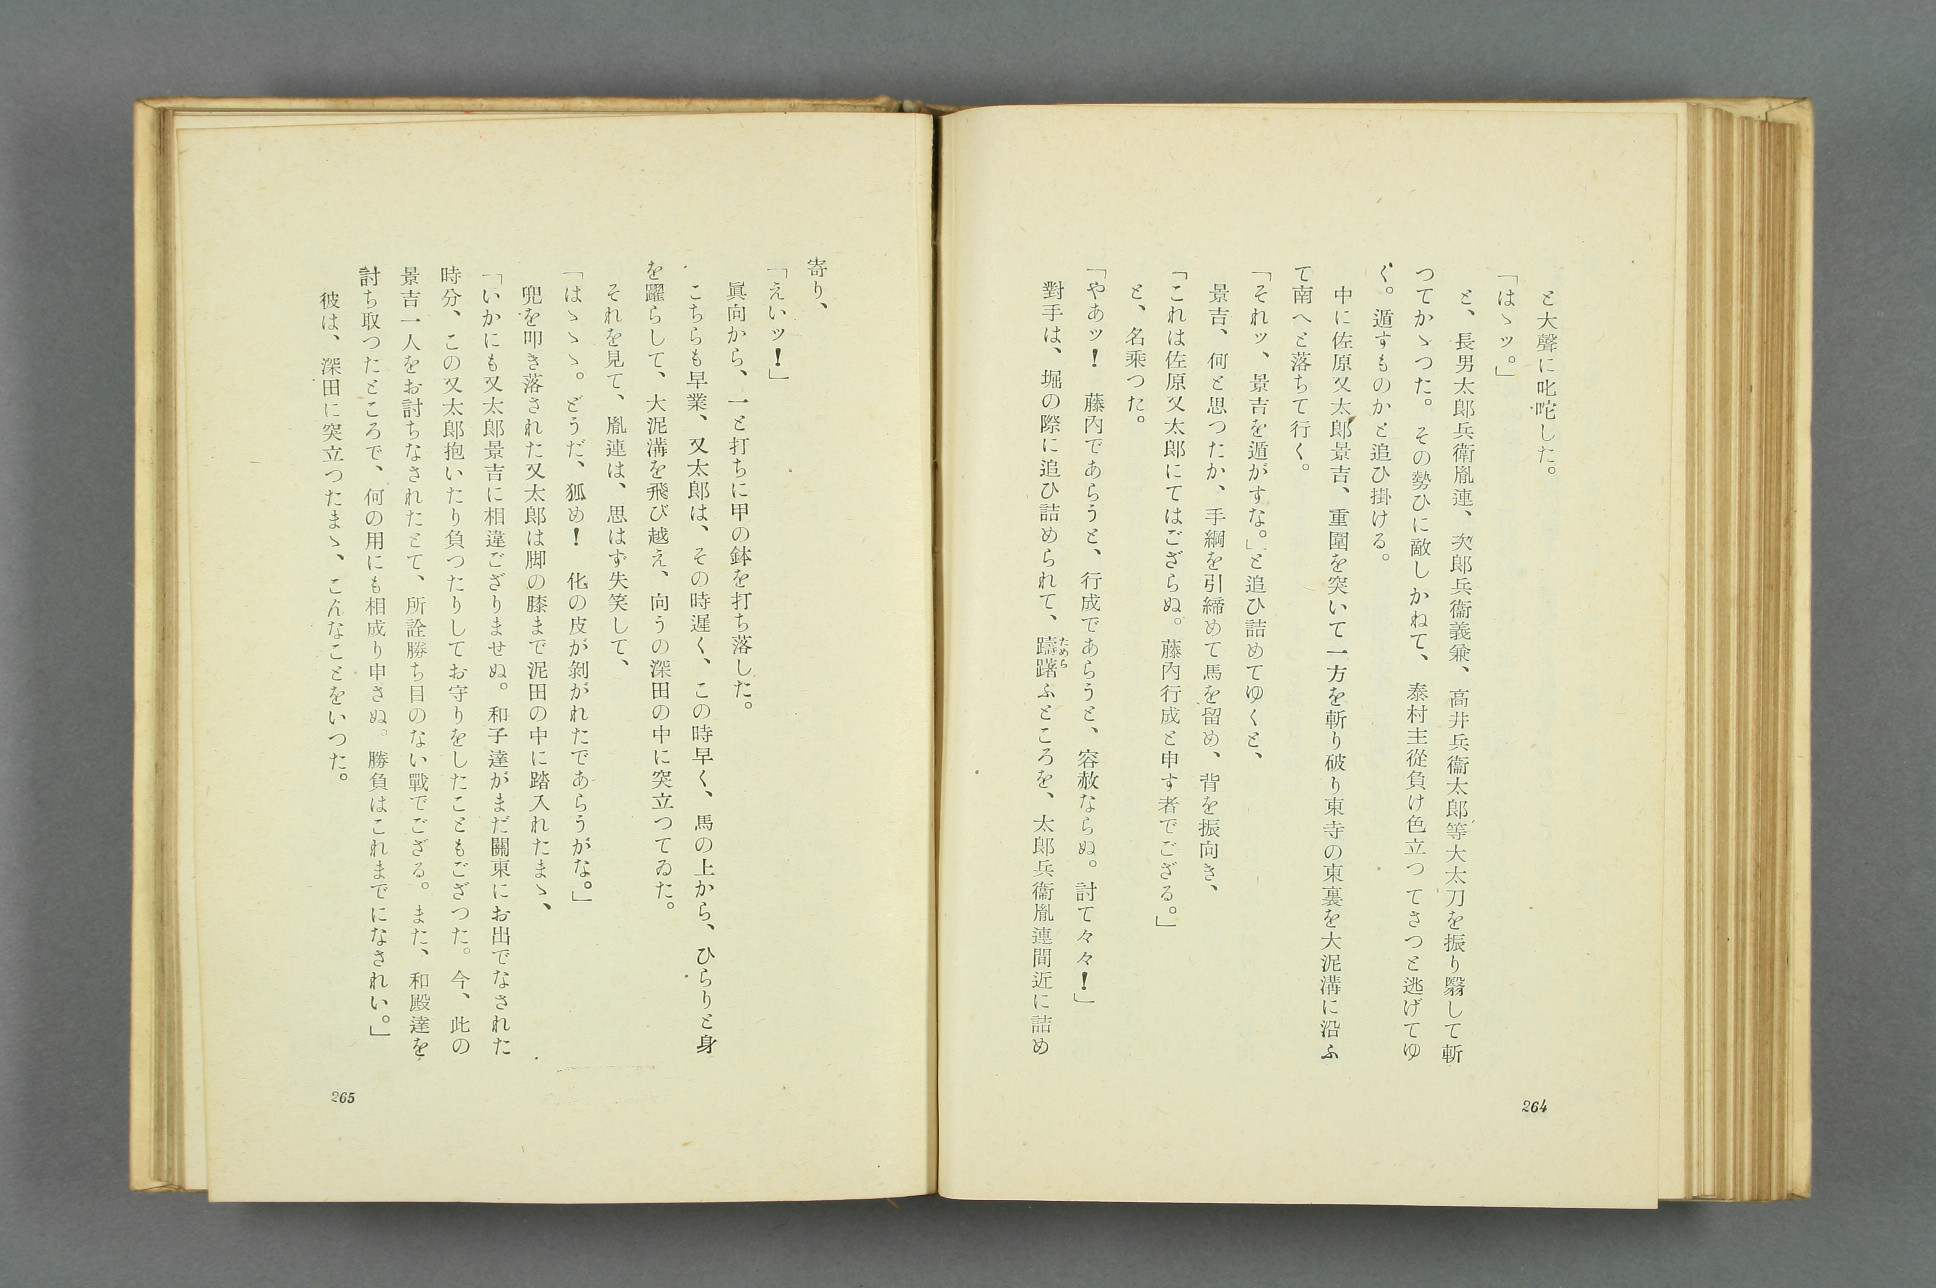 と大聲に叱咜した。
「はゝツ。」
と、長男太郎兵衛胤連、次郎兵衞義兼、高井兵衞太郎等大太刀を振り翳して斬
つてかゝつた。その勢ひに敵しかねて、泰村主從負け色立つてさつと逃げてゆ
く。遁すものかと追ひ掛ける。
中に佐原又太郎景吉、重圍を突いて一方を斬り破り東寺の東裏を大泥溝に沿ふ
て南へと落ちて行く。
「それッ、景吉を遁がすな。」と追ひ詰めてゆくと、
景吉、何と思つたか、手綱を引締めて馬を留め、背を振向き、
「これは佐原又太郎にてはござらぬ。藤内行成と申す者でござる。」
と、名乘つた。
「やあッ！　藤内であらうと、行成であらうと、容赦ならぬ。討て々々！」
對手は、堀の際に追ひ詰められて、躊躇ふところを、太郎兵衞胤連間近に詰め
ためら
264
寄り、
「えいッ！」
眞向から、一と打ちに甲の鉢を打ち落した。
こちらも早業、又太郎は、その時遲く、この時早く、馬の上から、ひらりと身
を躍らして、大泥溝を飛び越え、向うの深田の中に突立つてゐた。
それを見て、胤連は、思はず失笑して、
「はゝゝゝ。どうだ、狐め！　化の皮が剝がれたであらうがな。」
兜を叩き落された又太郎は脚の膝まで泥田の中に踏入れたまゝ、
「いかにも又太郎景吉に相違ござりませぬ。和子達がまだ關東にお出でなされた
時分、この又太郎抱いたり負つたりしてお守りをしたこともござつた。今、此の
景吉一人をお討ちなされたとて、所詮勝ち目のない戰でござる。また、和殿達を
討ち取つたところで、何の用にも相成り申さぬ。勝負はこれまでになされい。」
彼は、深田に突立つたまゝ、こんなことをいつた。
265